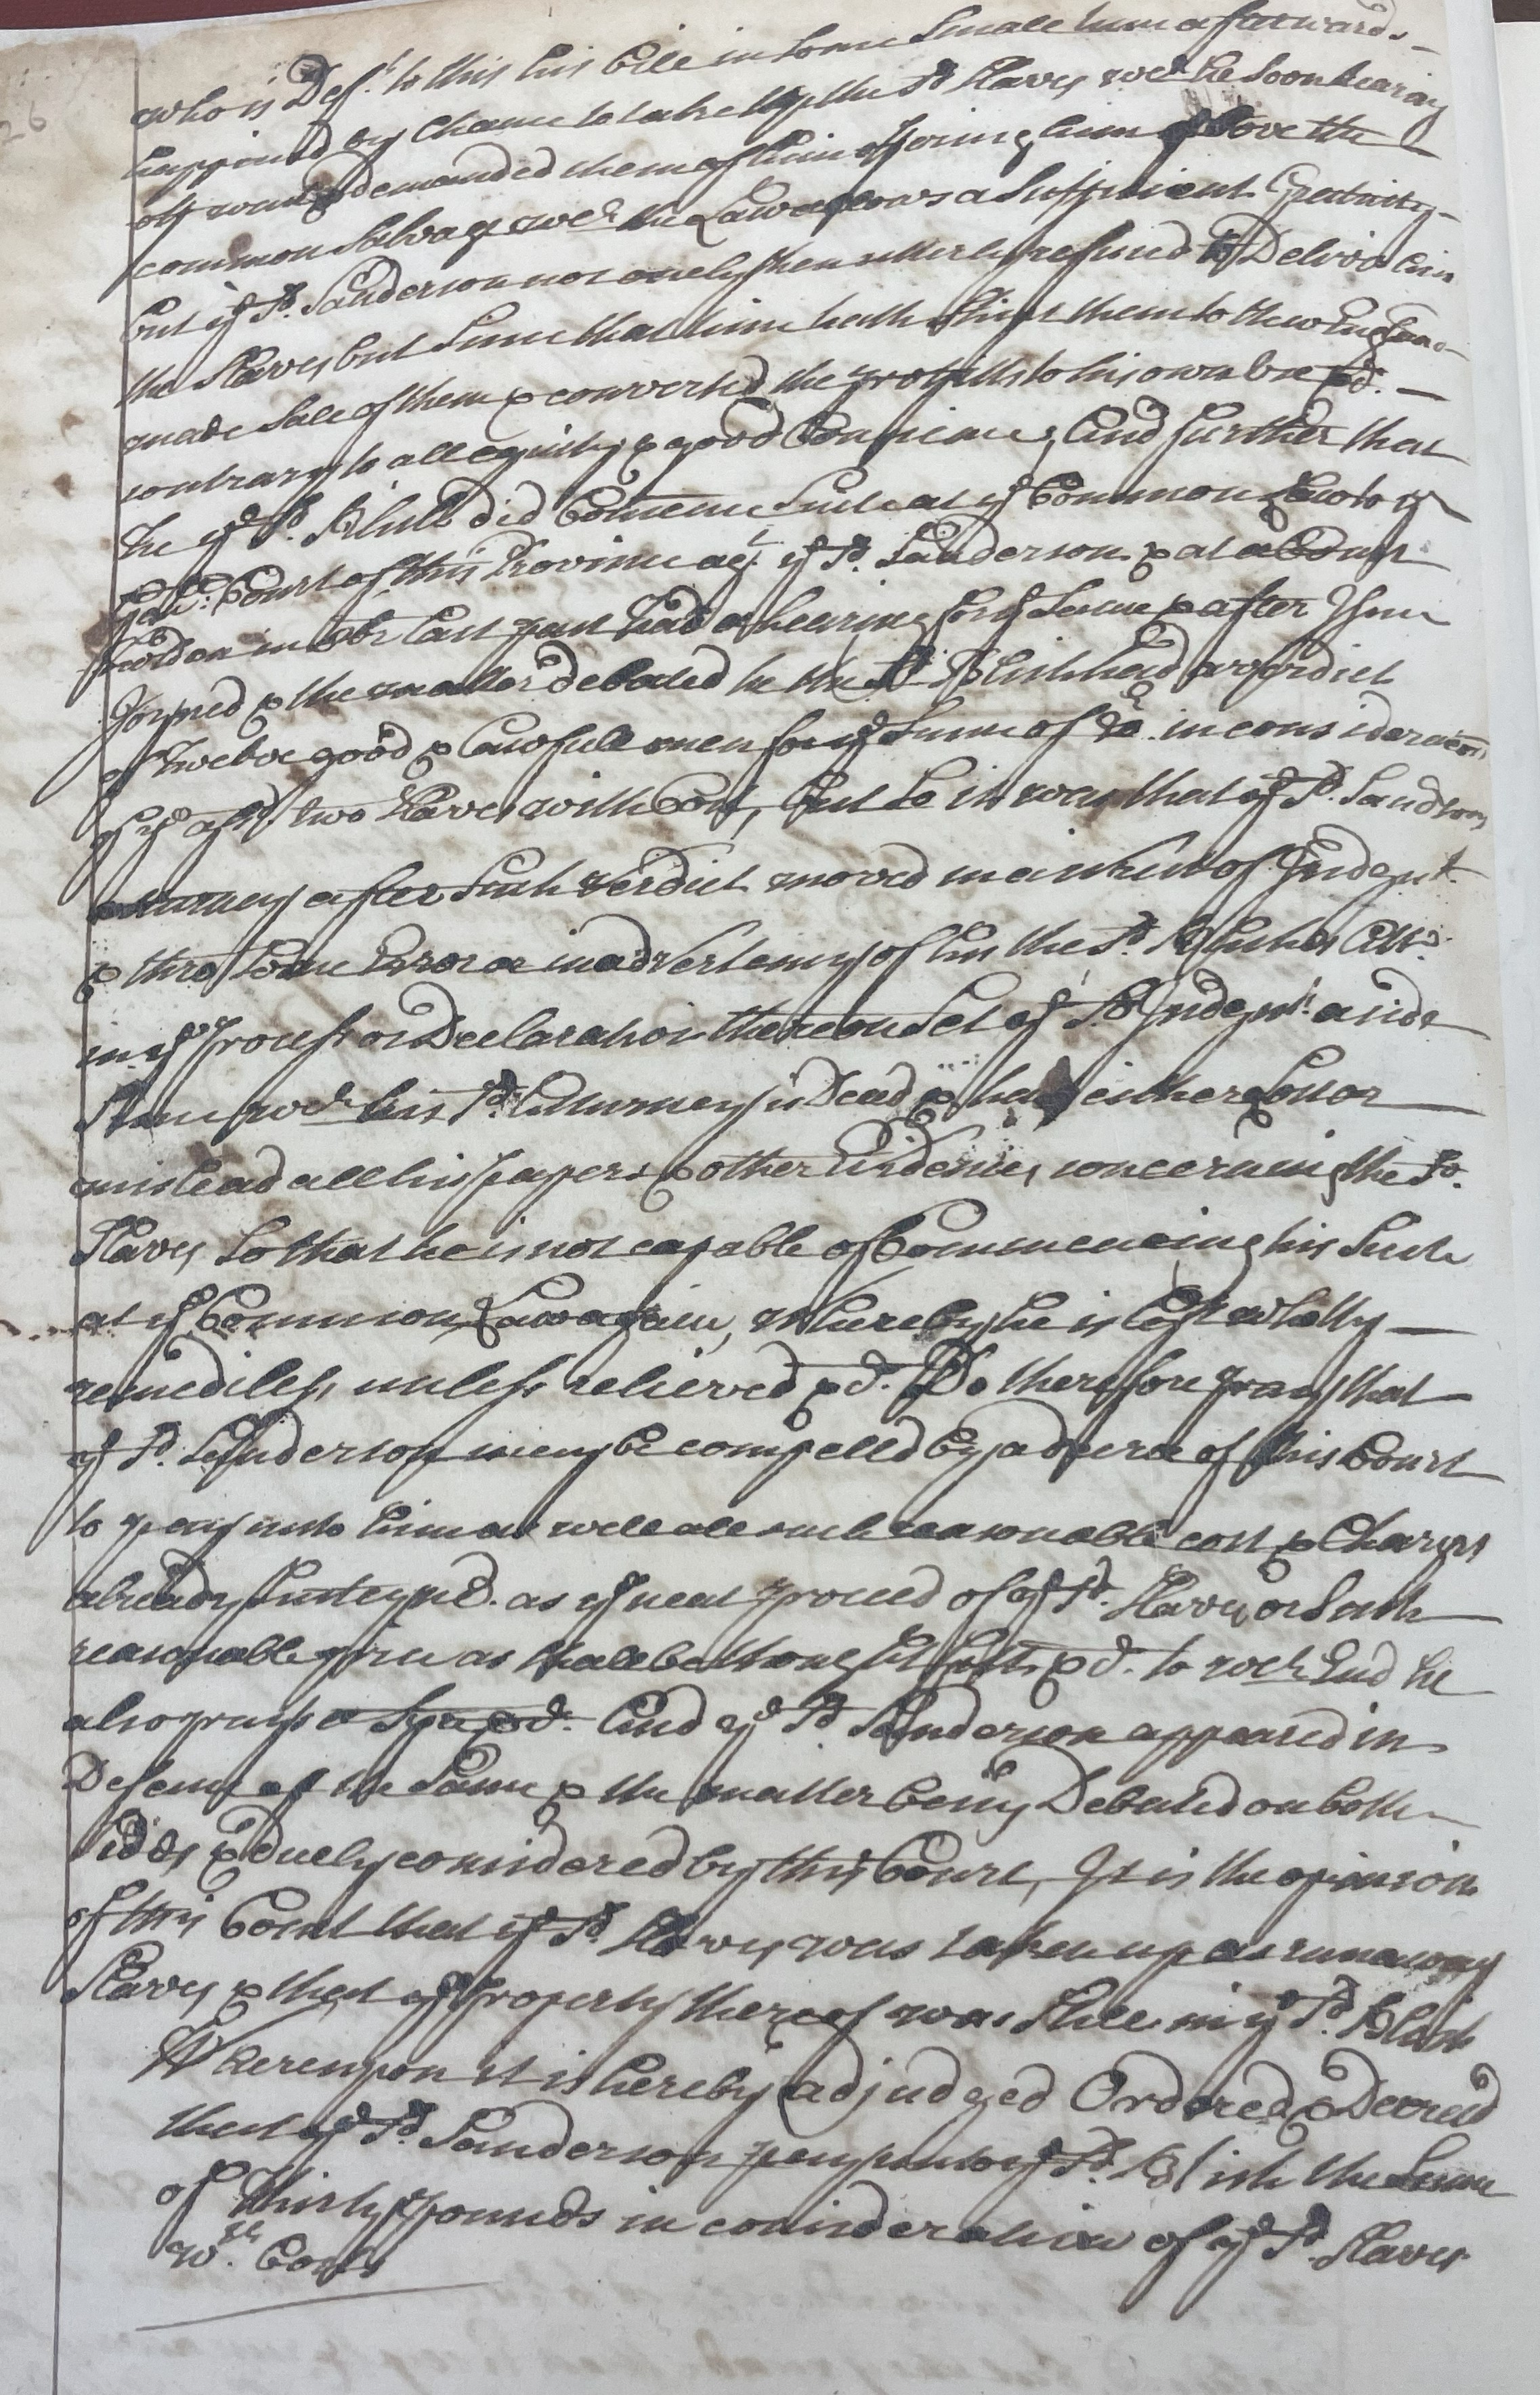 who is Def.t to this his bill in some Small time afterwards
happined by Chance to take up the sd Slaves wch he Soon hearing
off went & demanded them of him offering him above the
common Salvage wch the Law allows a Sufficient Gratuity
but ye sd. Sanderson not onely then utterly refused to Deliver him
the Slaves but Since that time hath Shipt them to New England
made Sale of them & converted the profitts to his own use &c.
contrary to all equity & good Conscience, And further that
he ye sd. Blish did Comence Suite at ye Common Law to ye
Genll. Court of this Province agt. ye sd. Sanderson & at a Court
holden in 8br Last past had a hearing for ye Same & after Issue
Joyned & the matter debated he the sd Blish had a verdict
of Twelve good & Lawfull men for ye Sume of in consideracon
of ye afsd two Slaves with Cost, But So it was that ye sd. Sanderson
after Such verdict moved in Arrest of Judgmt.
& thro Some Error or inadvertency of him the sd. Blishes Att.
in ye Process or Declaration thereon Set ye sd Judgmt. aside
Since wch his sd. Atturney is Dead & hath either Lost or
mislead all his papers & other Evidences concerning the sd.
Slaves So that he is not capable of Commenceing his Suite
at ye Common Law again, Whereby he is left wholly
remediless, unless relieved &c. Do therefore pray that
ye sd. Sanderson may be compelled by a decree of this Court
to pay unto him as well all such reasonable cost & Charges
already Susteyned. as ye neat proceed of ye sd. Slaves or Such
reasonable price as Shall be thought fitt &c. to wch End he
also prays a Spa &c. And ye sd Sanderson appeared in
Defence of the Same & the matter being Debated on both
sides & duely considered by this Court, It is the opinion
of this Court that ye sd. Slaves was taken up as runaway
Slaves & that ye property thereof was Still in ye sd. Blish
Whereupon it is hereby adjudged Ordered & Decreed
that ye sd. Sanderson pay unto ye sd. Blish the Sume
of Thirty pounds in consideration of ye sd. Slaves
wth. Costs